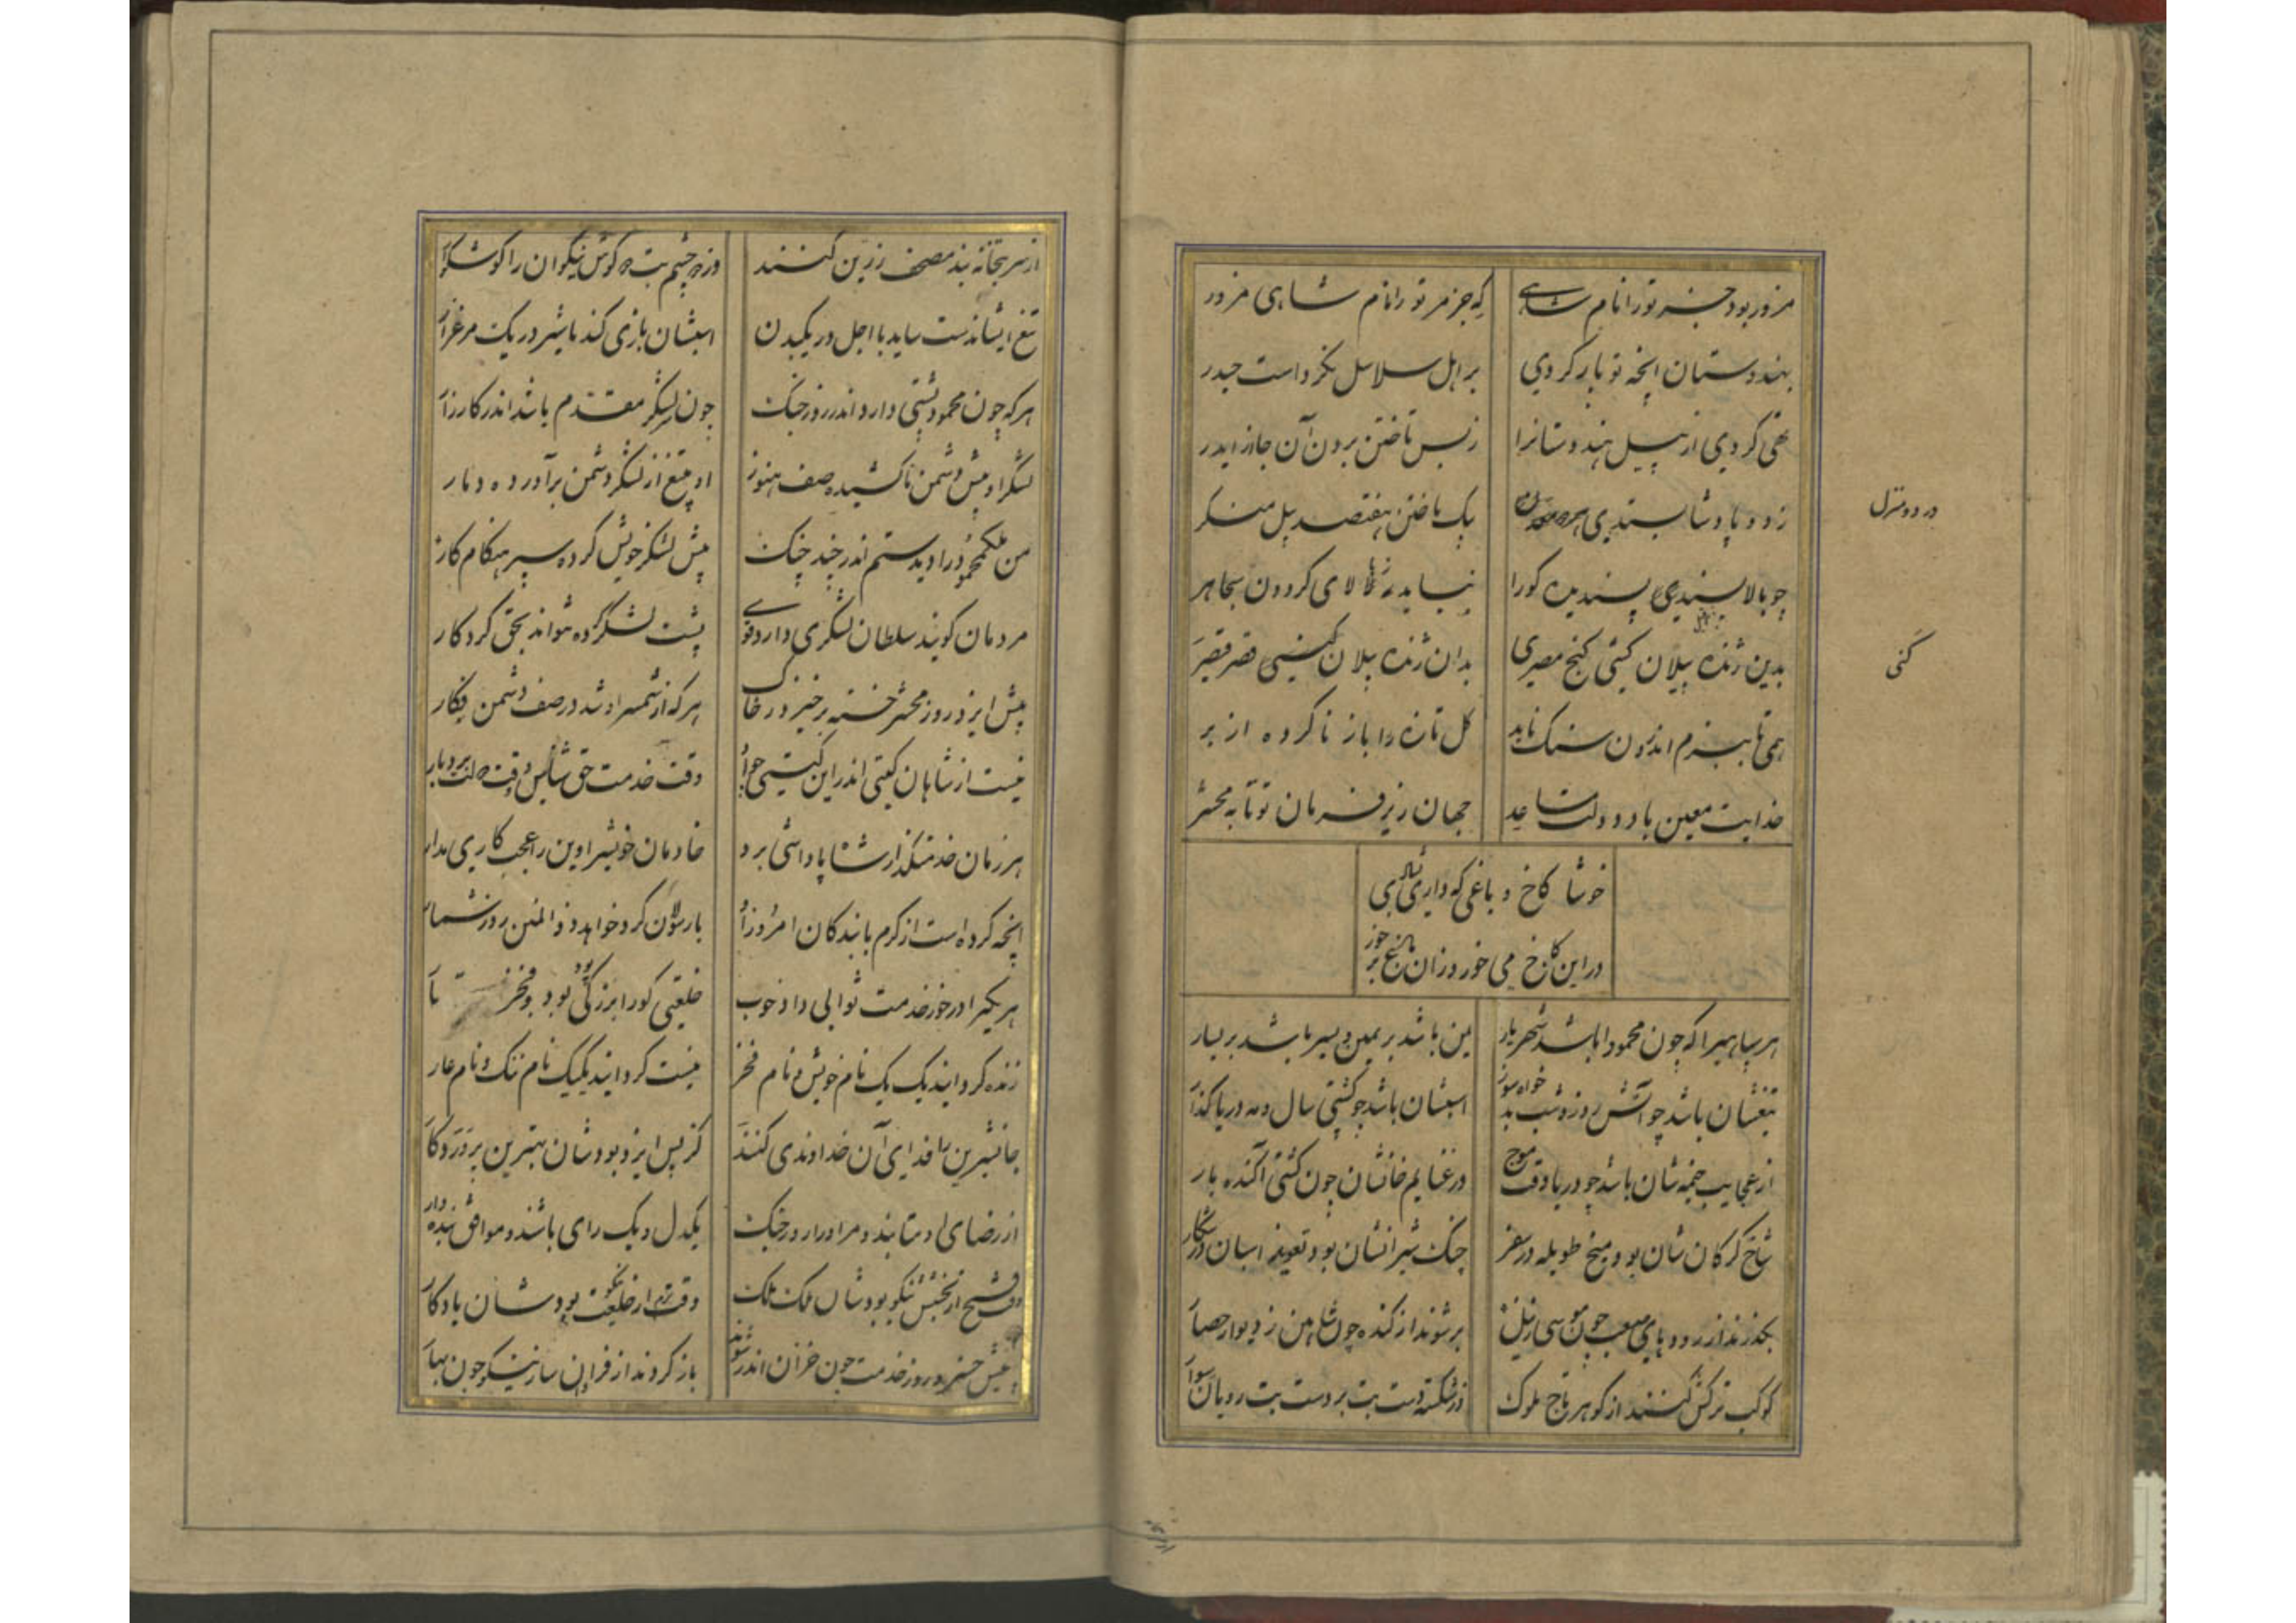 مزور بود جز تو را نام شاهی
که جز مر تو را نام شاهی مزور
بهندوستان انچه تو بار کردی
بر اهل سلاسل نکرد است حیدر
تهی کردی از پیل هندوستانرا
ز بس تاختن بردن آن جا از ایدر
ز دو پادشا بستدی
بیک تاختن هفتصد پیل منکر
در دو منزل
چو بالا پسندی پسندیده کورا
نیاید ز بالای کردون بجا هر
بدین ژنده پیلان کشی کنج مصری
بدان ژنده پیلان کشی قصر قیصر
کنی
همی تا بنیزم اندرون سنک ناید
کل تازه را باز ناکرده از بر
خدایت معین باد و دولت مساعد
جهان زیر فرمان تو تا به محشر
خوشا کاخ و باغی که داری بشادی
در این کاخ می خور وزان باغ بر خور
هر سپاهیرا که چون محمود باشد شهریار
یمن باشد بر یمین و یسر باشد بر یسار
تیغشان باشد چو آتش روز و شب بدخواه سوز
اسبشان باشد چو کشتی سال و مه دریا کذار
از عجایب خیمه شان باشد چو دریا وقت موج
در غنایم خانشان چون کشتی آکنده بار
شاخ کرکان شان بود میخ طویله در سفر
چنک شیرانشان بود تعویذ اسبان در شکار
بکذرند از رودهای صعب چون موسی ز نیل
بر شوند از کنده چون شاهین ز دیوار حصار
کوکب ترکش کنند از کوهر تاج ملوک
وز شکسته دست بت بر دست بت رویان سوار
از سر بتخانه بند مصحف زرین کنند
وز دو چشم بت دو کوش نیکوان را کوشوار
تیغ ایشاندست ساید با اجل در یکبدن
اسبشان بازی کند با شیر در یک مرغزار
هر که چون محمود پشتی دارد اندر روز جنک
چون سر لشکر مقدم باشد اندر کارزار
لشکر او پیش دشمن ناکشیده صف هنوز
او بتیغ از لشکر دشمن برآورده دمار
من ملک محمود را دیدستم اندر چند جنک
پیش لشکر خویش کرده سپر هنکام کار
مردمان کویند سلطان لشکری دارد قوی
پشت لشکر کرده شواند بحق کردکار
پیش ایزد روز محشر خسته برخیزد ز خاک
هر که از شمشیر او شد در صف دشمن فکار
نیست از شاهان کیتی اندر این کیتی چو او
وقت خدمت حق شناس و وقت ذلت بردبار
هر زمان خدمتکذار شاه پاداشی برد
خادمان خویشرا وین را عجب کاری مدار
انچه کرده است از کرم با بندکان امروز او
با رسولان کرد خواهد ذوالمنن روز شمار
هر یکیرا در خور خدمت ثوابی داد خوب
خلعتی کورا بزرکی بود پود و فخر تار
زنده کردانید یک یک نام خویش و نام فخر
نیست کردانید یکیک نام ننک و نام عار
جان شیرین را فدای آن خداوندی کنند
کز پس ایزد بود شان بهترین پروردکار
از رضای او متابند و مر او را روز جنک
یکدل و یک رای باشند و موافق بنده وار
وقت فتح از بخشش نیکو بود شان ملک ملک
وقت رزم از خلعت نیکو بود شان یادکار
پیش خسرو روز خدمت چون خزان اندر شوند
باز کردند از فراوان ساز نیکو چون بهار